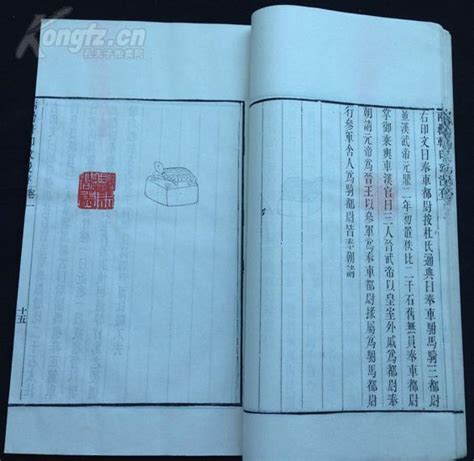 Kongfz.cn
孔夫子拍卖网
兩罍軒印攷漫存
右印文曰奉車都尉按杜氏通典曰奉車駙馬騎三都尉
並漢武帝元鼎二年初置秩比二千石舊無員奉車都尉
掌御乘輿車漢官曰三人晉武帝以皇室外戚爲奉車都尉
朝請元帝爲晉王以參軍爲奉車都尉掾屬爲駙馬都尉
行參軍舍人爲騎都尉皆奉朝請
十五